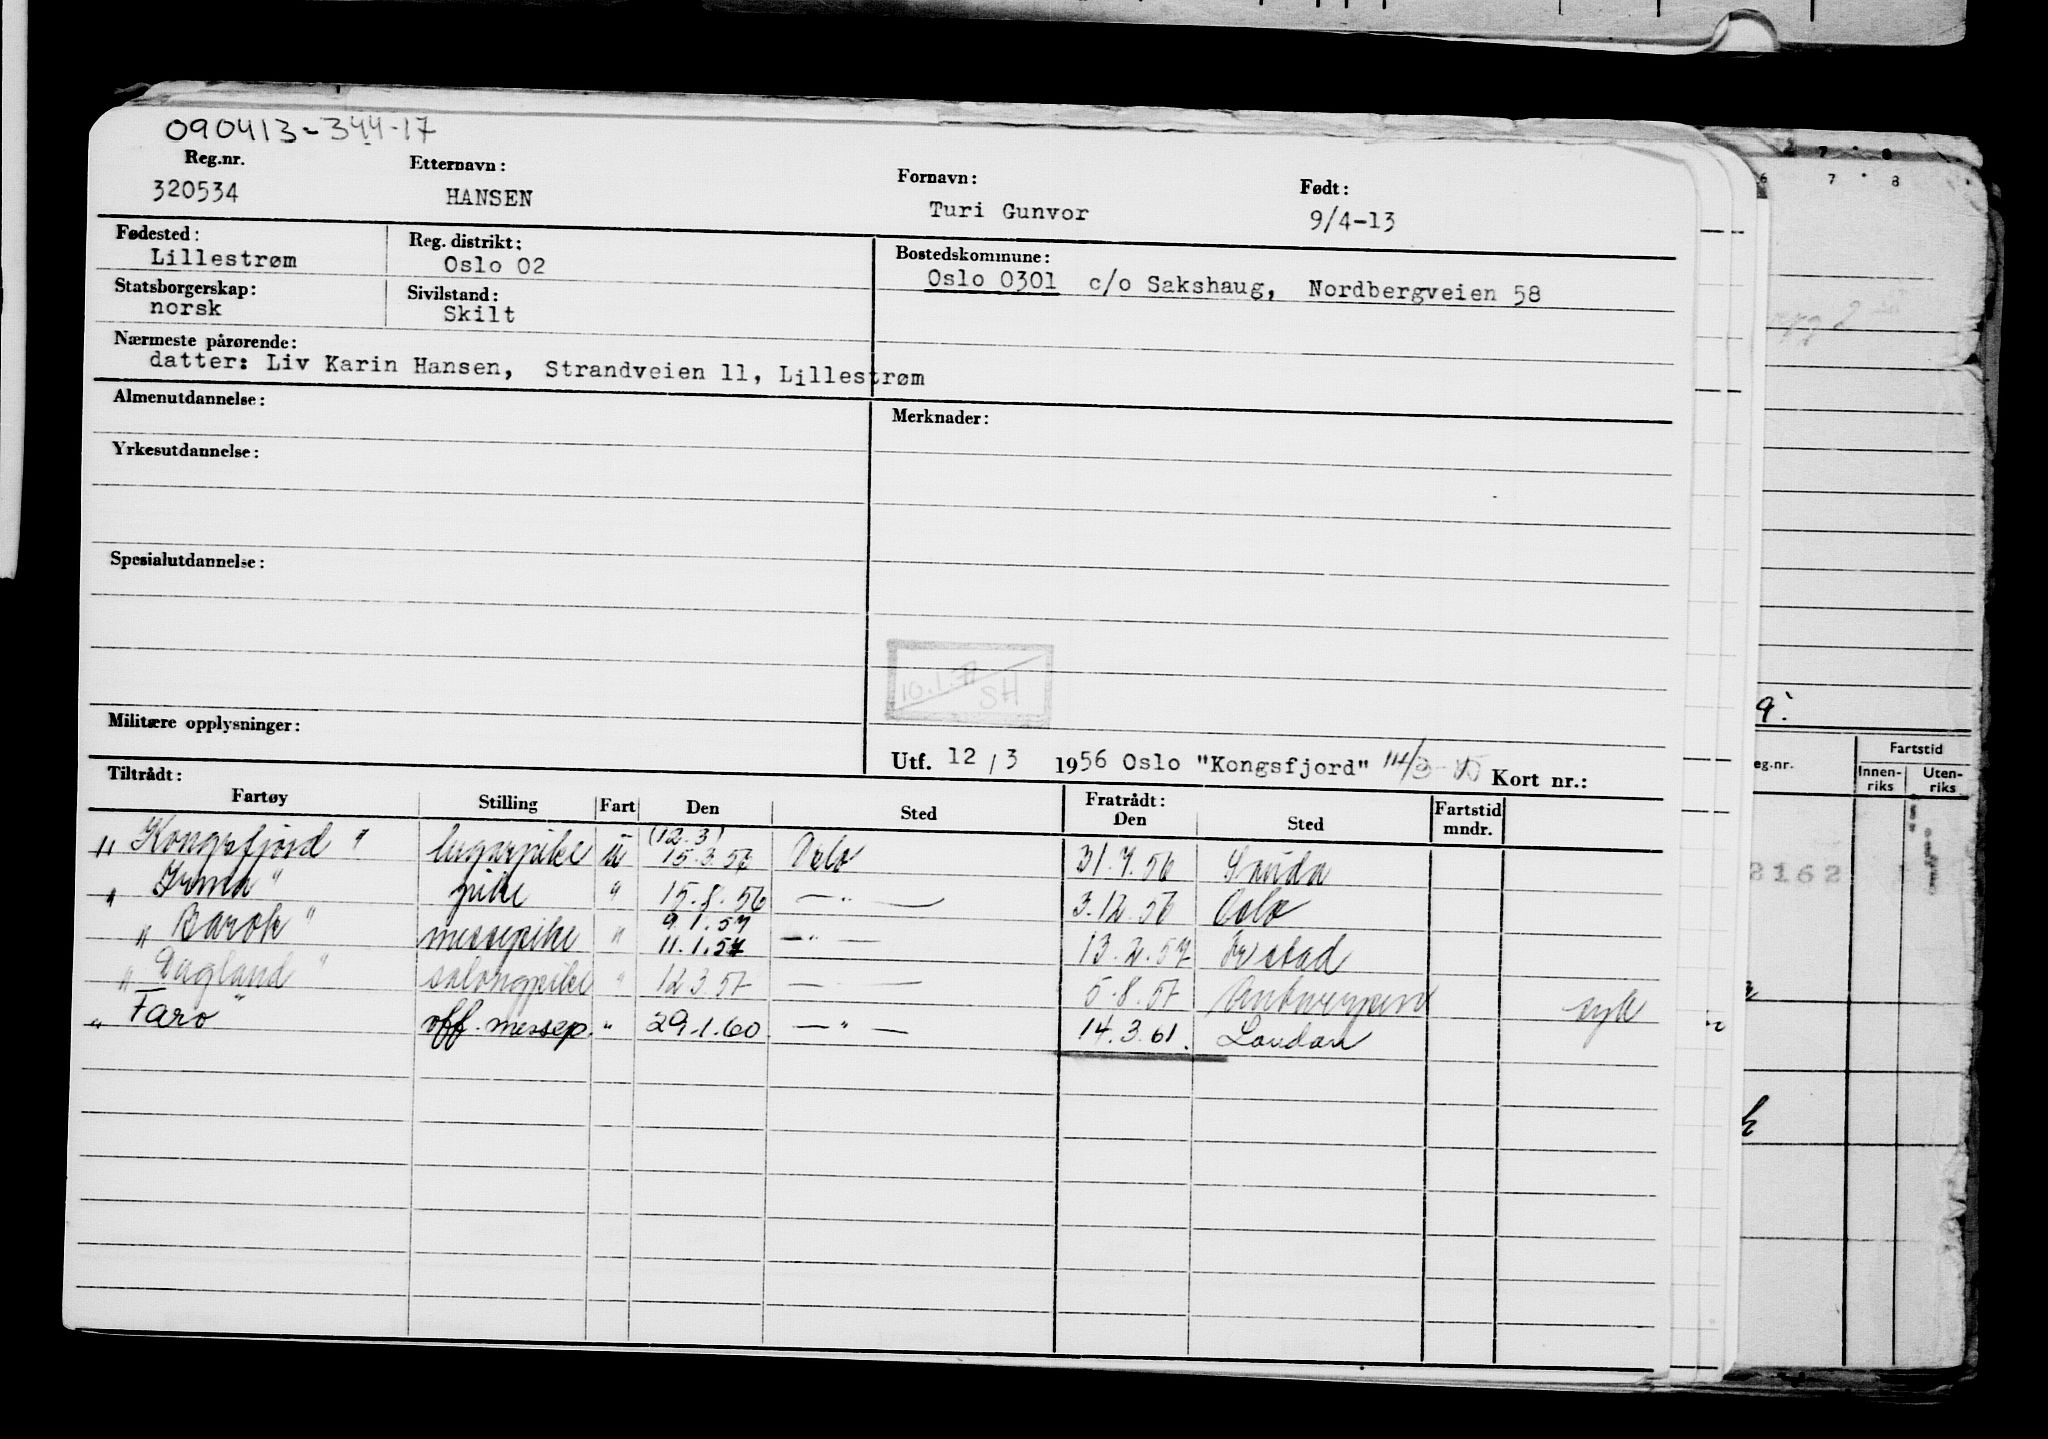 090413-344-17
Reg.nr. Etternavn: Fornavn: Født:
320534 HANSEN Turi Gunvor 9/4-13
Fødested: Reg. distrikt: Bostedskommune:
Lillestrøm Oslo 02 Oslo 0301 c/o Sakshaug, Nordbergveien 58
Statsborgerskap: Sivilstand:
norsk Skilt
Nærmeste pårørende:
datter: Liv Karin Hansen, Strandveien 11, Lillestrøm
Almenutdannelse: Merknader:
Yrkesutdannelse:
Spesialutdannelse:
10.1.77 SH
Militære opplysninger:
Utf. 12/3 1956 Oslo "Kongsfjord" Kort nr.:
Tiltrådt: Fratrådt:
Fartøy Stilling Fart Den Sted Den Sted Fartstid mndr.
(12.3)
"Kongsfjord" lugarpike u 15.3.56 Oslo 31.7.56 Sauda
"Irma" pike " 15.8.56 —"— 3.12.56 Oslo
9.1.57
"Barok" messepike " 11.1.57 —"— 13.2.57 Fr stad
"Dagland" salongpike " 12.3.57 — — 5.8.57 Antwerpen syk
"Faro" off. messep. " 29.1.60 —"— 14.3.61. London
6 7 8
9.
eg.nr. Fartstid
Innen-riks Uten-riks
2162